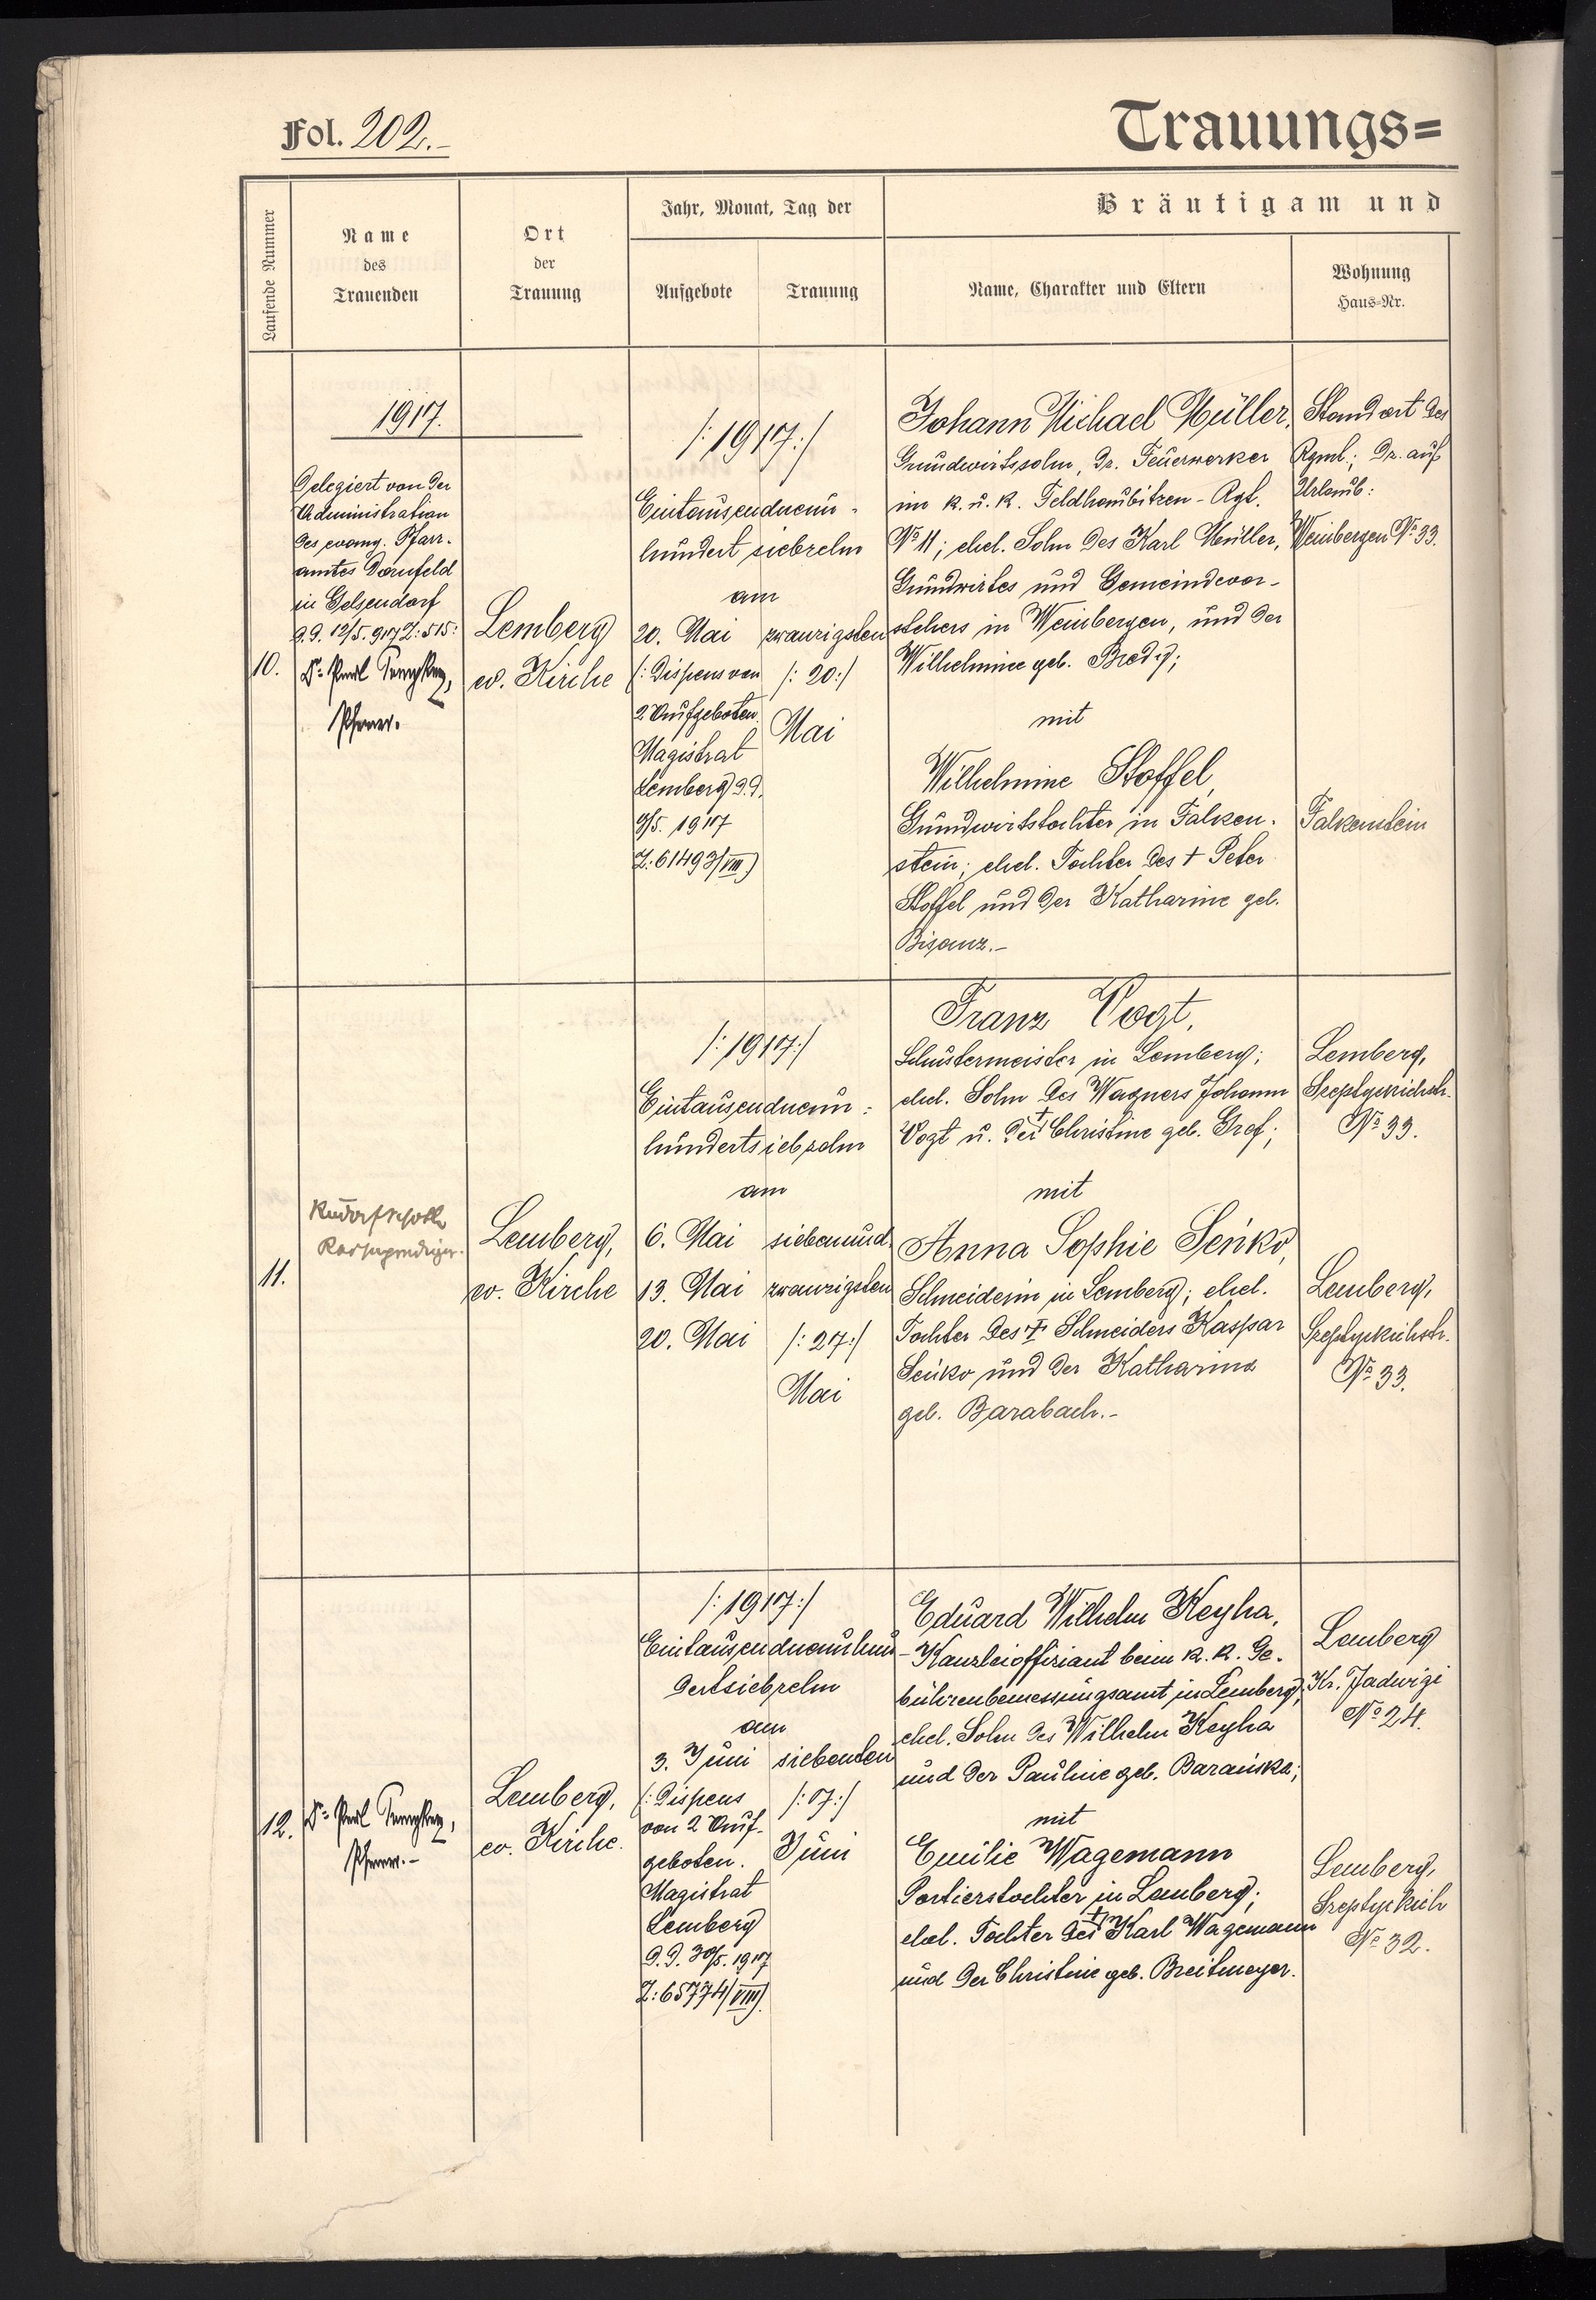 Fol. 202.-
Trauungs=
Laufende Nummer
Name
des
Trauenden
Ort
der
Trauung
Jahr, Monat, Tag der
Aufgebote
Trauung
Bräutigam und
Name, Charakter und Eltern
Wohnung
Haus=Nr.
1917.
10.
Delegiert von der
Administration
des evang. Pfarr-
amtes Dornfeld
in Gelsendorf
d.d. 12/5. 917 Z: 515:
Dr.
Pfarrer.
Lemberg
ev. Kirche
/:1917:/
Eintausendneun-
hundert siebzehn
am
20. Mai
(: Dispens von
2 Aufgeboten.
Magistrat
Lemberg d.d.
9/5. 1917
Z: 61493/VIII)
zwanzigsten
/:20:/
Mai
Johann Michael Müller,
Grundwirtssohn, dz. Feuerwerker
im k. u. k. Feldhaubitzen-Rgt.
No 11; ehel. Sohn des Karl Müller,
Grundwirtes und Gemeindevor-
stehers in Weinbergen, und der
Wilhelmine geb. Bredy;
mit
Wilhelmine Stoffel,
Grundwirtstochter in Falken-
stein; ehel. Tochter des + Peter
Stoffel und der Katharine geb.
Bisanz.-
Standort des
Rgmt.; dz. auf
Urlaub:
Weinbergen No 33.
Falkenstein
11.
Lemberg,
ev. Kirche
/:1917:/
Eintausendneun-
hundertsiebzehn
am
6. Mai
13. Mai
20. Mai
siebenund
zwanzigsten
/:27:/
Mai
Franz Vogt,
Schustermeister in Lemberg;
ehel. Sohn des Wagners Johann
Vogt u. der + Christine geb. Gref;
mit
Anna Sophie Seńko,
Schneiderin in Lemberg; ehel.
Tochter des + Schneiders Kaspar
Seńko und der Katharina
geb. Barabach.-
Lemberg,
Szeptyckichstr.
No 33.
Lemberg,
Szeptyckichstr.
No 33.
12.
Dr.
Pfarrer.-
Lemberg,
ev. Kirche.
/:1917:/
Eintausendneunhun-
dertsiebzehn
am
3. Juni
(: Dispens
von 2 Auf-
geboten.
Magistrat
Lemberg
d.d. 30/5. 1917
Z: 65774/VIII).
siebenten
/:7:/
Juni
Eduard Wilhelm Keyha,
Kanzleioffiziant beim k. k. Ge-
bührenbemessungsamt in Lemberg;
ehel. Sohn des Wilhelm Keyha
und der Pauline geb. Barańska;
mit
Emilie Wagemann
Portierstochter in Lemberg;
ehel. Tochter des + Karl Wagemann
und der Christine geb. Breitmeyer.
Lemberg
Kr. Jadwigi
No 24.
Lemberg,
Szeptyckich
No 32.